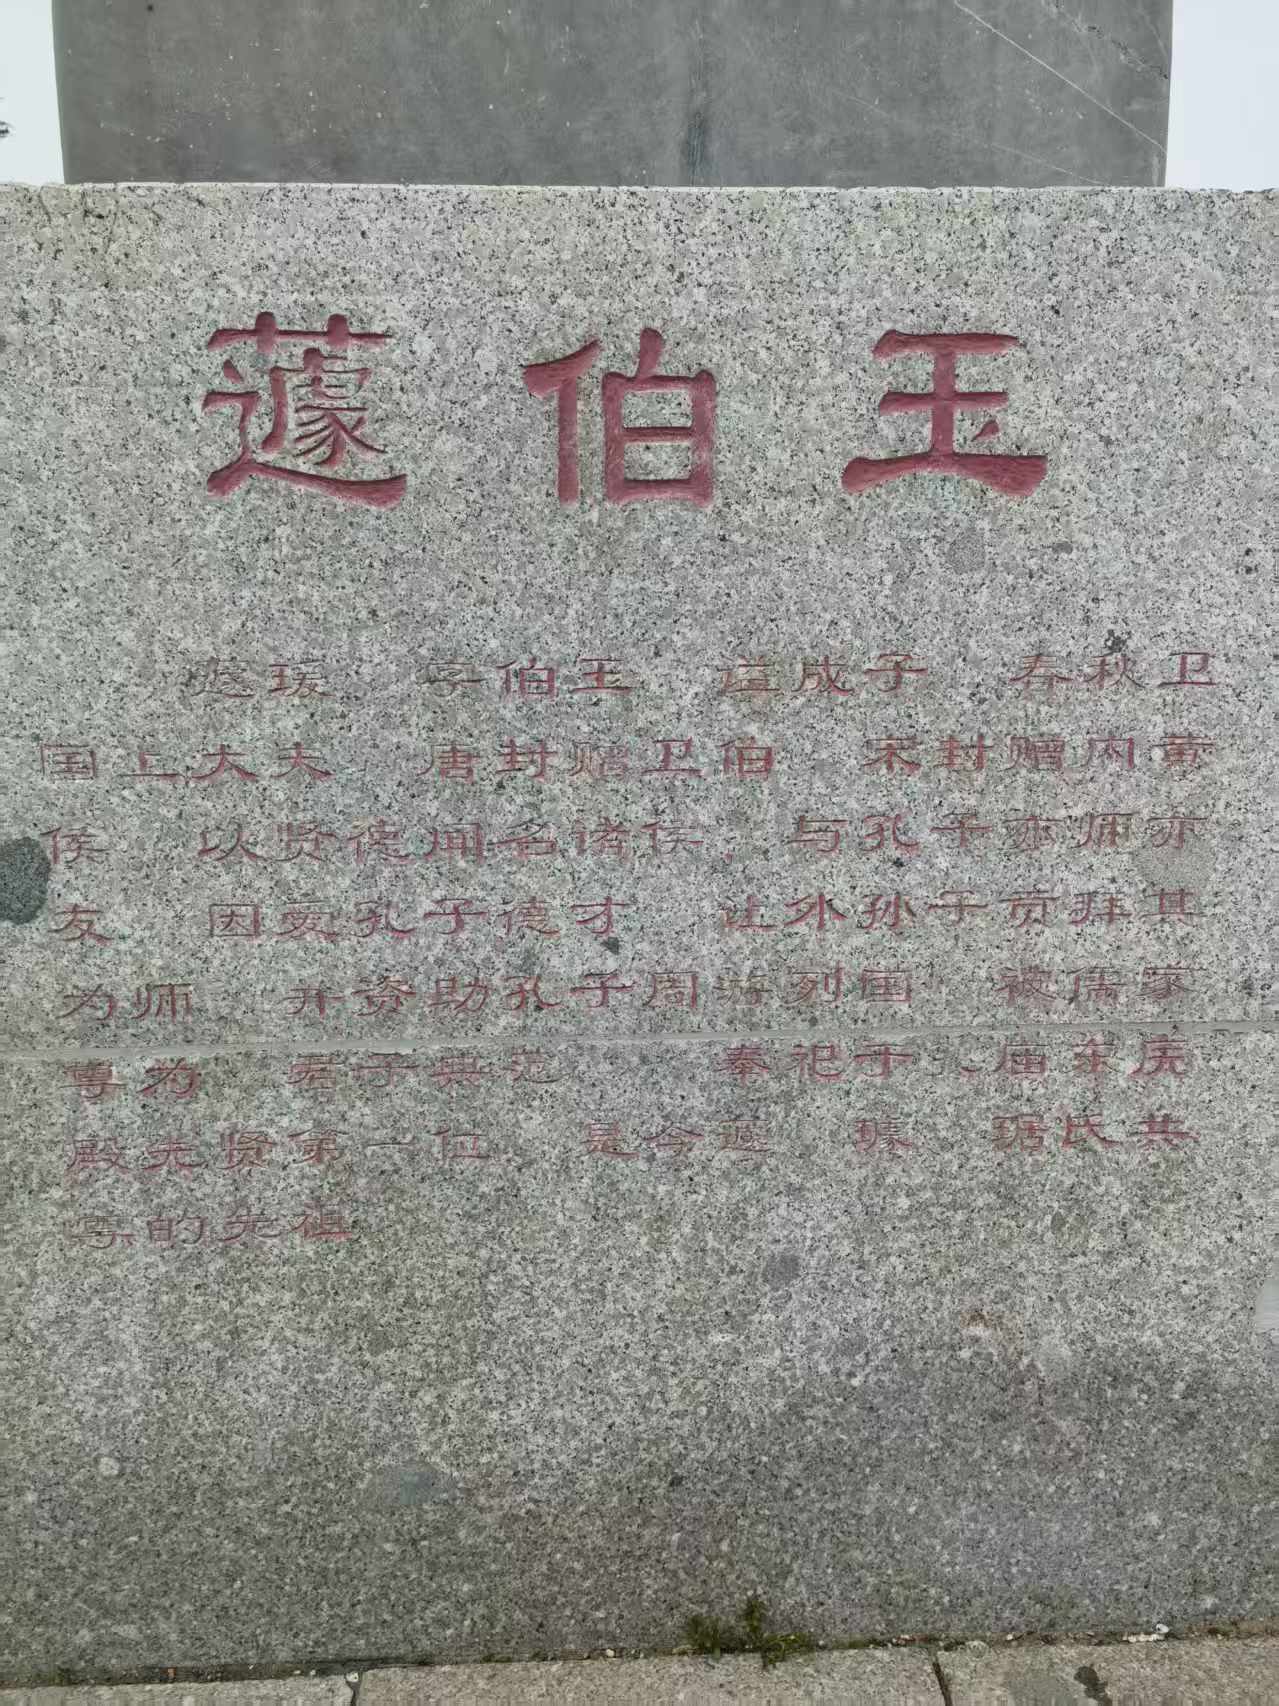 蘧伯玉
蘧瑗 字伯玉 谥成子 春秋卫
国上大夫 唐封赠卫伯 宋封赠内黄
侯 以贤德闻名诸侯，与孔子亦师亦
友 因爱孔子德才 让外孙子贡拜其
为师 并资助孔子周游列国 被儒家
尊为 君子典范 奉祀于孔庙东庑
殿先贤第一位 是今蘧 璩 琚氏共
尊的先祖